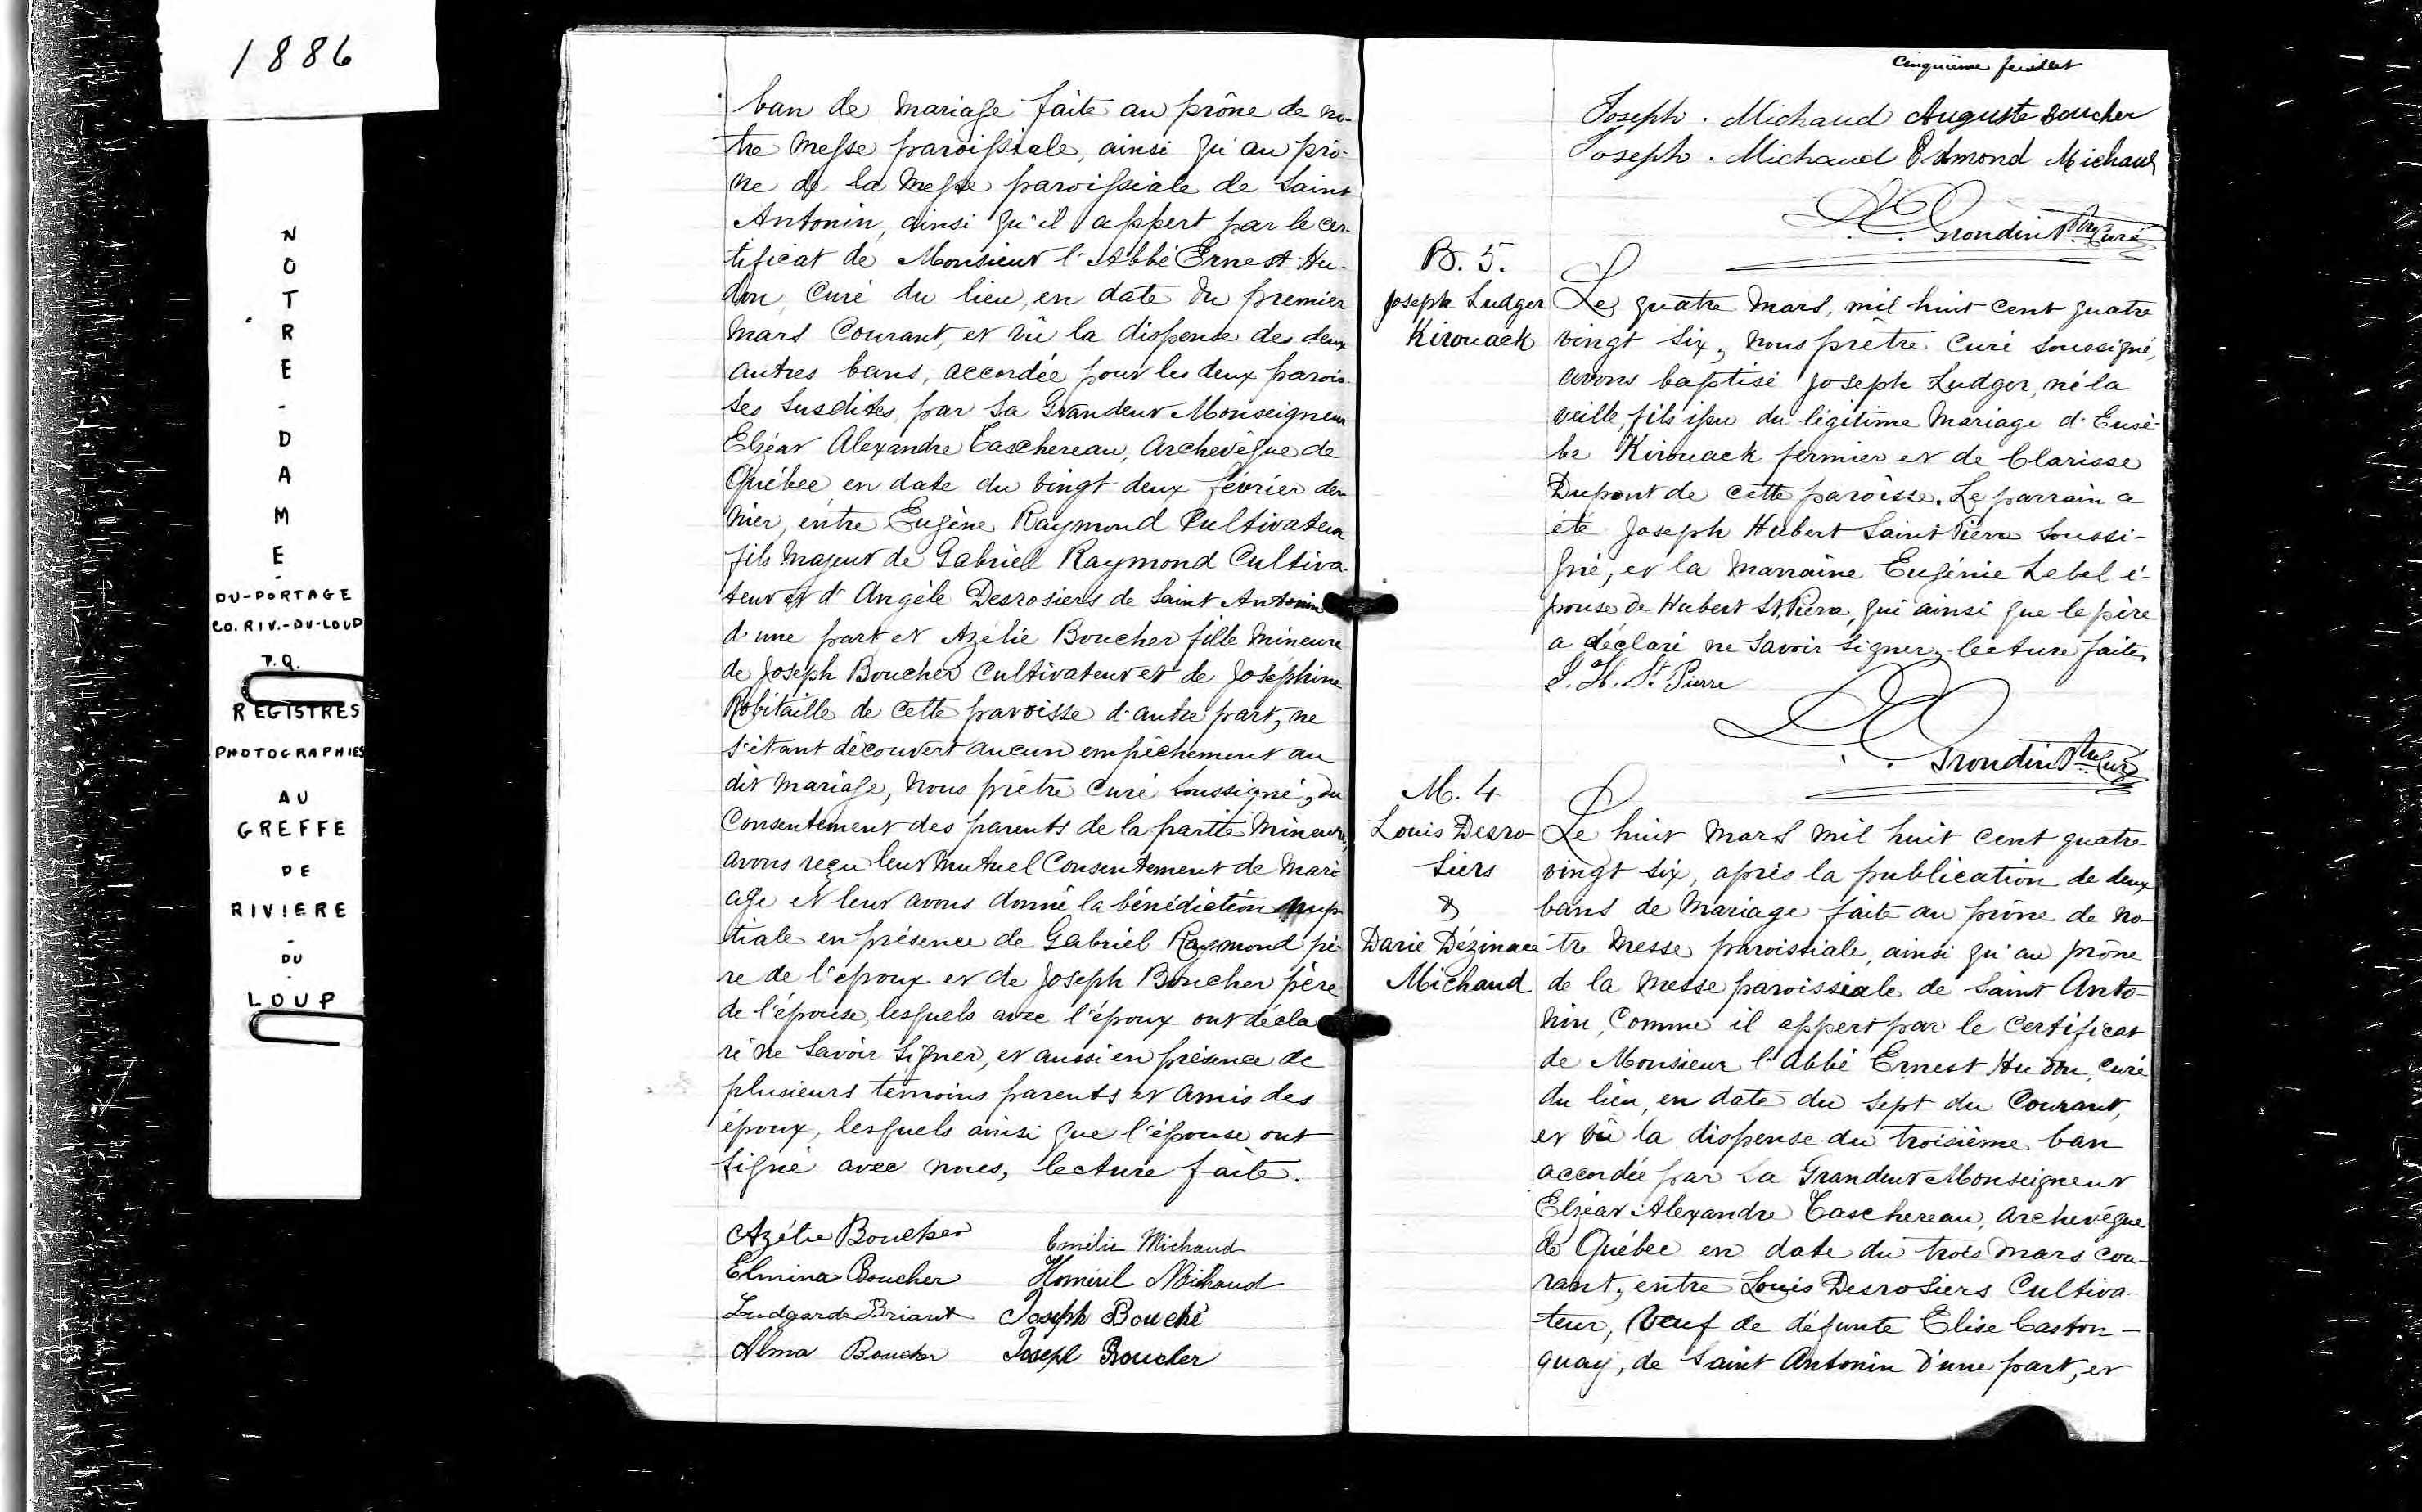 1886
NOTRE-DAME-
DU-PORTAGE
CO. RIV.-DU-LOUP
P.Q.
REGISTRES
PHOTOGRAPHIES
AU
GREFFE
DE
RIVIERE
-
DU
-
LOUP
ban de mariage faite au prône de no-
tre Messe paroissiale, ainsi qu'au prô-
ne de la Messe paroissiale de Saint
Antonin, ainsi qu'il appert par le cer-
tificat de Monsieur l'Abbé Ernest Hu-
don, Curé du lieu, en date du premier
Mars Courant, et vû la dispense des deux
autres bans, accordée pour les deux parois-
ses susdites, par Sa Grandeur Monseigneur
Elzéar Alexandre Taschereau, Archevêque de
Québec en date du vingt deux février der-
nier, entre Eugène Raymond Cultivateur
fils majeur de Gabriel Raymond Cultiva-
teur et d'Angèle Desrosiers de Saint Antonin
d'une part et Azélie Boucher fille mineure
de Joseph Boucher Cultivateur et de Joséphine
Robitaille de cette paroisse d'autre part, ne
s'étant découvert aucun empêchement au
dit mariage, Nous prêtre curé soussigné, du
Consentement des parents de la partie mineure,
avons reçu leur mutuel Consentement de Mari-
age et leur avons donné la bénédiction nup-
tiale en présence de Gabriel Raymond pè-
re de l'époux et de Joseph Boucher père
de l'épouse, lesquels avec l'époux ont décla-
ré ne savoir signer, et aussi en présence de
plusieurs témoins parents et amis des
époux, lesquels ainsi que l'épouse ont
signé avec nous, lecture faite.
Azélie Boucher Emélie Michaud
Elmina Boucher Homéril Michaud
Ludgarde Briant Joseph Bouché
Alma Boucher Joseph Boucher
Cinquième feuillet
Joseph. Michaud Auguste Boucher
Joseph. Michaud Edmond Michaud
Grondin Ptre Curé
B. 5.
Joseph Ludger
Kirouack
Le quatre Mars, mil huit cent quatre
vingt six, nous prêtre Curé soussigné,
avons baptisé Joseph Ludger, né la
veille, fils issu du légitime Mariage d'Eusè-
be Kirouack fermier et de Clarisse
Dupont de cette paroisse. Le parrain a
été Joseph Hubert Saint Pierre soussi-
gné, et la Marraine Eugénie Lebel é-
pouse de Hubert St. Pierre, qui ainsi que le père
a déclaré ne savoir signer, lecture faite.
J. H. St. Pierre
Grondin Ptre Curé
M. 4
Louis Desro-
siers
&
Darie Dézinace
Michaud
Le huit Mars mil huit cent quatre
vingt six, après la publication de deux
bans de Mariage faite au prône de no-
tre Messe paroissiale, ainsi qu'au prône
de la Messe paroissiale de Saint Anto-
nin, Comme il appert par le Certificat
de Monsieur l'Abbé Ernest Hudon, Curé
du lieu, en date du sept du Courant,
et vû la dispense du troisième ban
accordée par Sa Grandeur Monseigneur
Elzéar Alexandre Taschereau, Archevêque
de Québec en date du trois Mars cou-
rant, entre Louis Desrosiers Cultiva-
teur, Veuf de défunte Elise Caston-
quay, de Saint Antonin d'une part, et